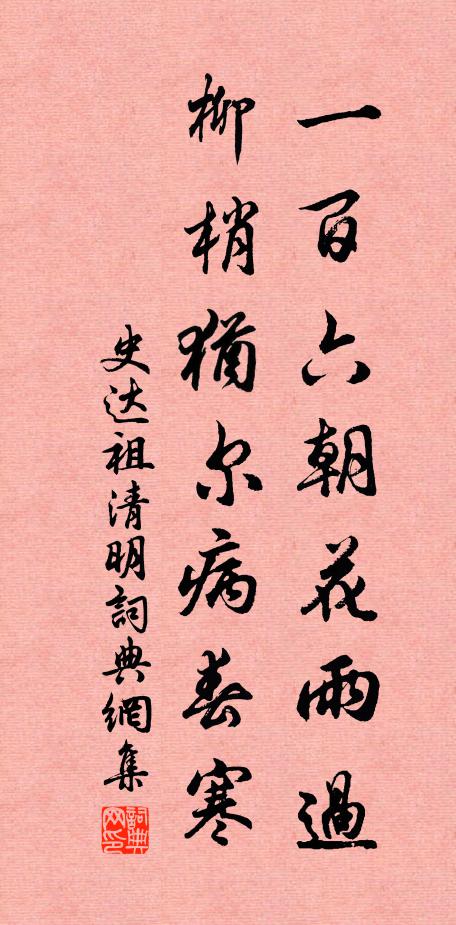 一百六朝花雨過
柳梢猶尔病春寒
史达祖清明詞典網集
詞典网印